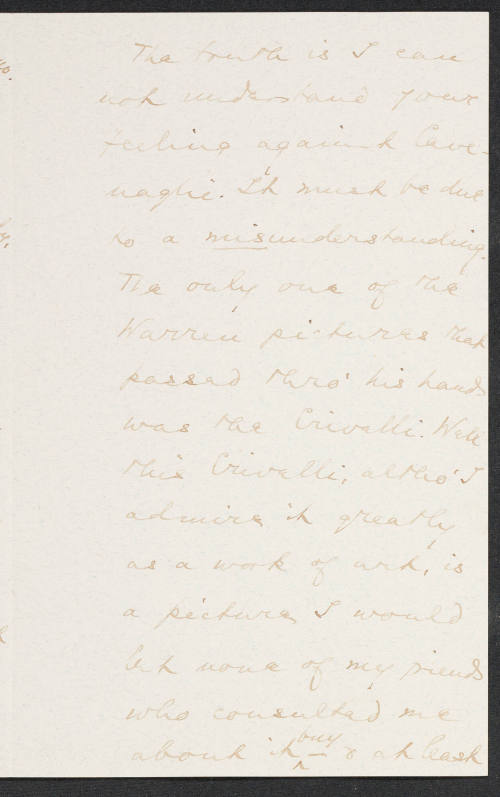 The truth is I can
not understand your
feeling against Cave-
naghi. It must be due
to a misunderstanding.
The only one of the
Warren pictures that
passed thro' his hands
was the Crivelli. Well
this Crivelli, altho' I
admire it greatly
as a work of art, is
a picture I would
let none of my friends
who consulted me
about it buy – & at least